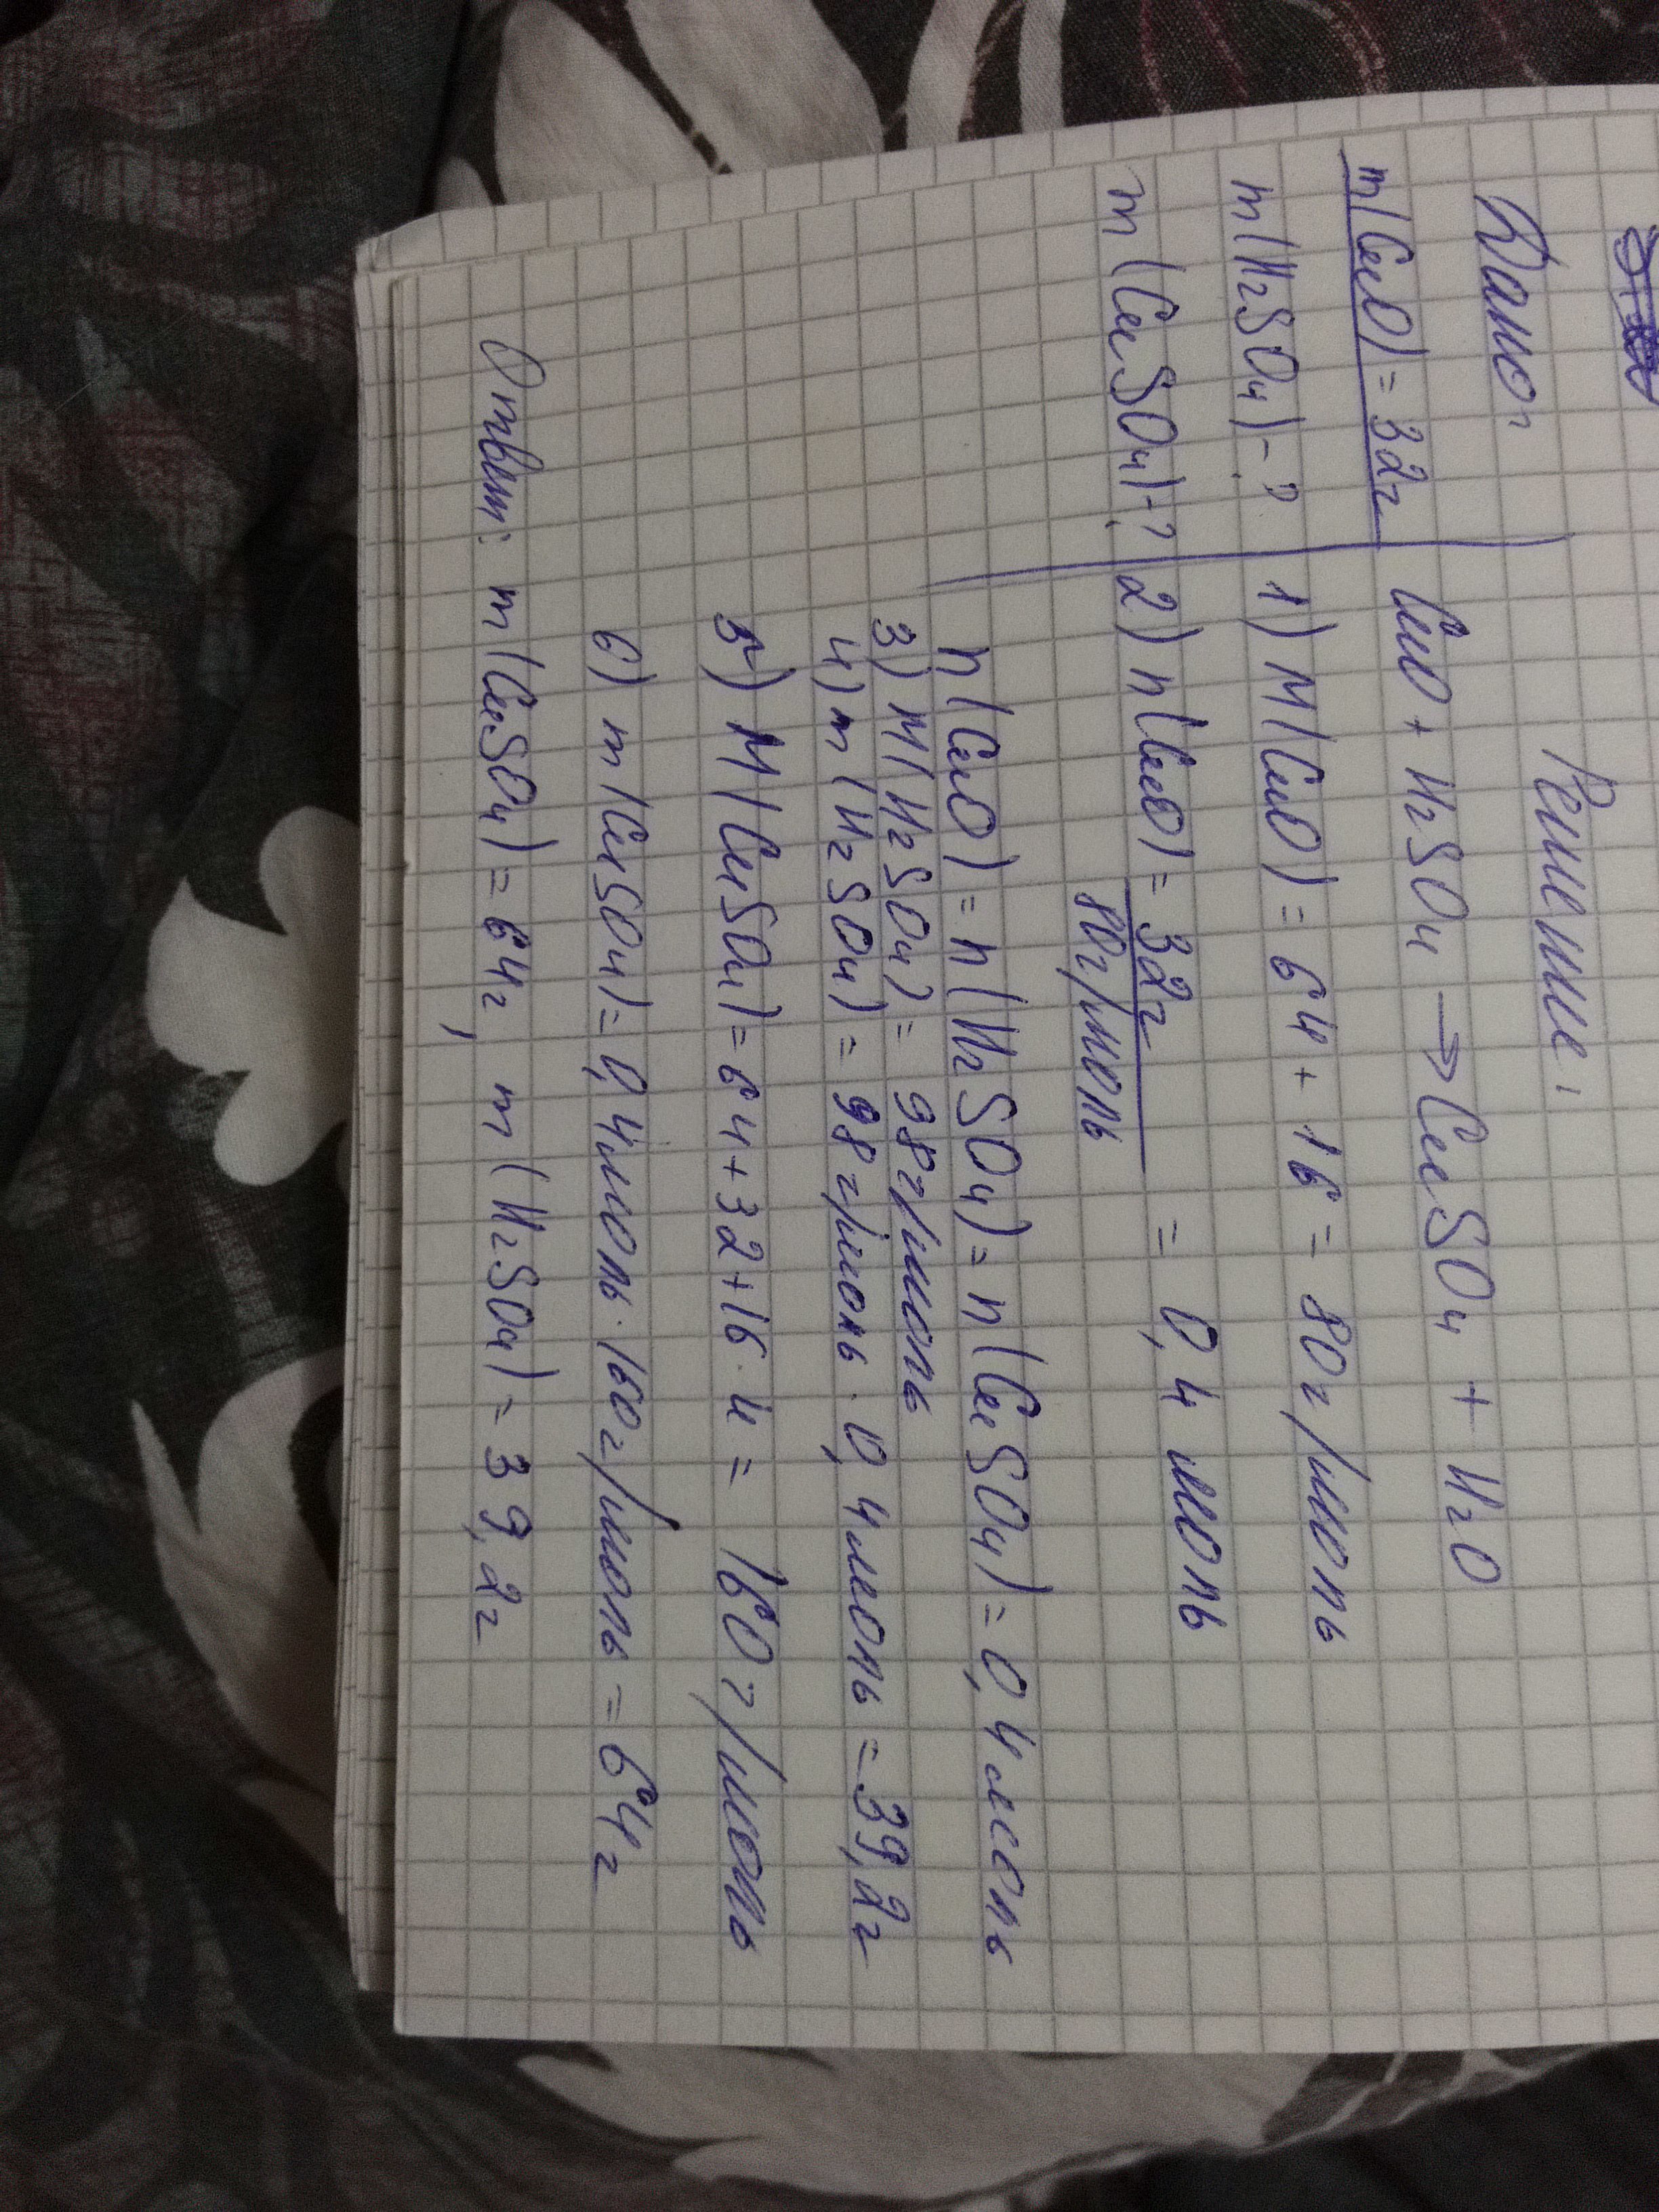 Дано:
m(CuO) = 32г
m(H2SO4) - ?
m(CuSO4) - ?
Решение:
CuO + H2SO4 → CuSO4 + H2O
1) M(CuO) = 64 + 16 = 80г/моль
2) n(CuO) = 32г / 80г/моль = 0,4 моль
n(CuO) = n(H2SO4) = n(CuSO4) = 0,4 моль
3) M(H2SO4) = 98г/моль
4) m(H2SO4) = 98г/моль · 0,4 моль = 39,2г
5) M(CuSO4) = 64 + 32 + 16 · 4 = 160г/моль
6) m(CuSO4) = 0,4моль · 160г/моль = 64г
Ответ: m(CuSO4) = 64г, m(H2SO4) = 39,2г